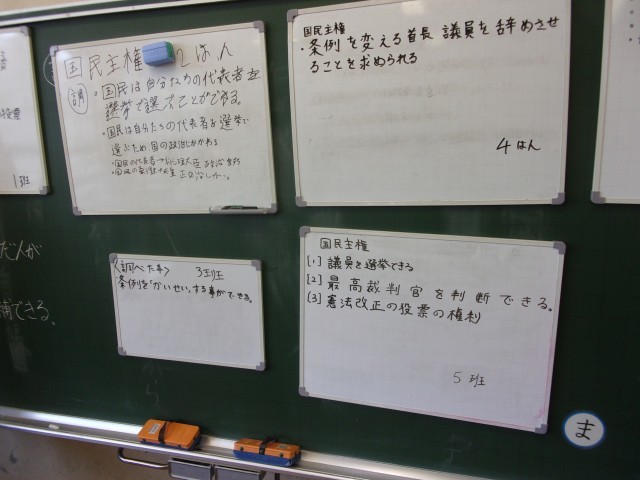 1班
だ人が
できる。
国民主権
しはん
調
・国民は自分たちの代表者を
選挙で選ぶことができる。
・国民は自分たちの代表者を選挙で
選ぶため、国の政治に
国民主権
・条例を変える首長 議員を辞めさせ
ることを求められる
4はん
〈調べた事〉 3班
条例を「かいせい」する事ができる。
国民主権
[1] 議員を選挙できる
[2] 最高裁判官を判断できる。
[3] 憲法改正の投票の権利
5班
ま